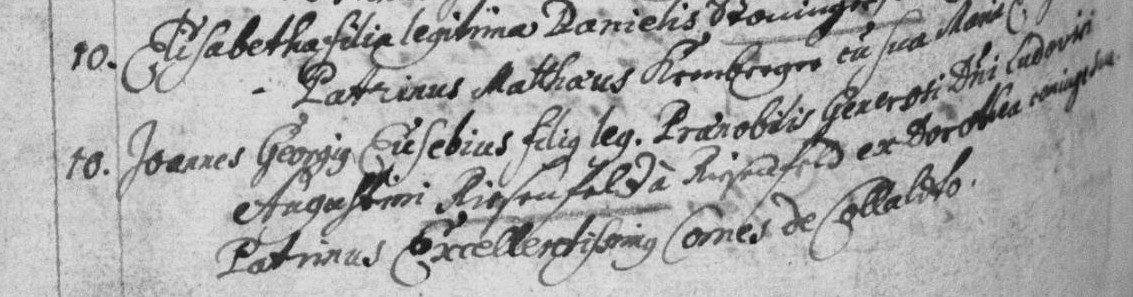 10. Elisabetha filia legitima Danielis
Patrinus Matthæus Krenberger cū sua Maria
10. Joannes Georgiq Eusebius filiq leg. Prænobilis Generosi Dñi Ludovici
Augustini Riesenfeld à Riesenfeld ex Dorothea coniuge sua
Patrinus Excellentissimq Comes de Collaldo.